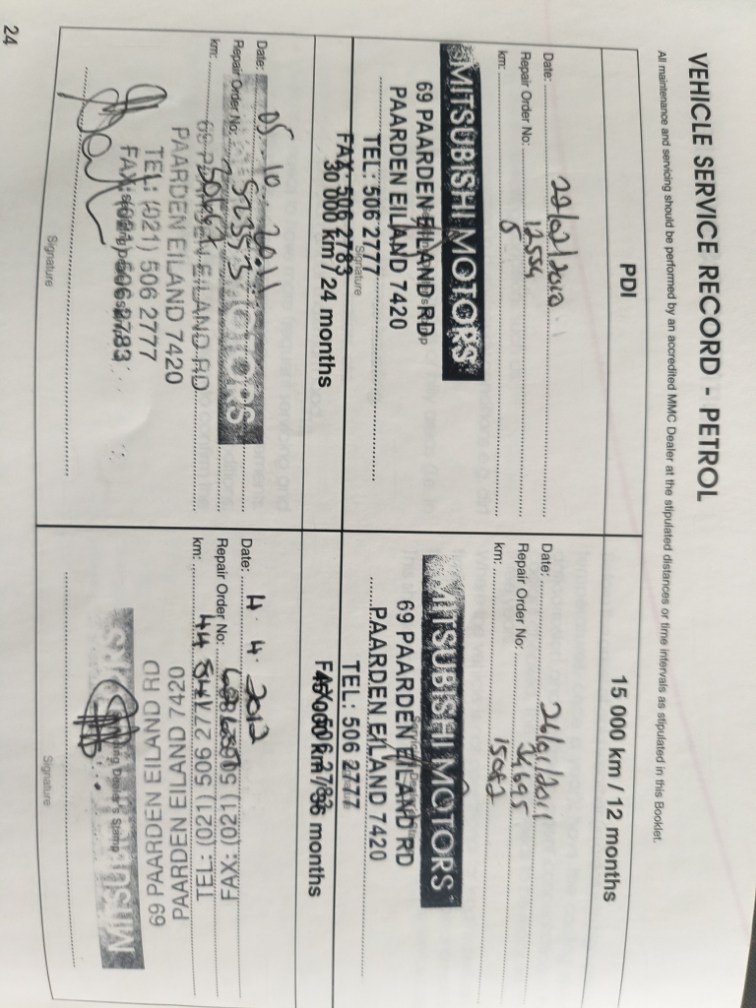 VEHICLE SERVICE RECORD - PETROL
All maintenance and servicing should be performed by an accredited MMC Dealer at the stipulated distances or time intervals as stipulated in this Booklet.
PDI
Date:
Repair Order No: 12554
km: 5
MITSUBISHI MOTORS
69 PAARDEN EILAND RD
PAARDEN EILAND 7420
Signature
TEL: 506 2777
FAX: 506 2783
15 000 km / 12 months
Date: 26/01/2011
Repair Order No:
km: 15082
MITSUBISHI MOTORS
69 PAARDEN EILAND RD
PAARDEN EILAND 7420
TEL: 506 2777
FAX: 506 2783
30 000 km / 24 months
Date: 05-10-2011
Repair Order No:
km:
MOTORS
69 PAARDEN EILAND RD
PAARDEN EILAND 7420
TEL: (021) 506 2777
FAX: (021) 506 2783
Signature
45 000 km / 36 months
Date: 4.4.2012
Repair Order No:
km:
FAX: (021) 506
TEL: (021) 506 277
PAARDEN EILAND 7420
69 PAARDEN EILAND RD
Servicing Dealer's Stamp
MITSUBISHI MOTORS
Signature
24